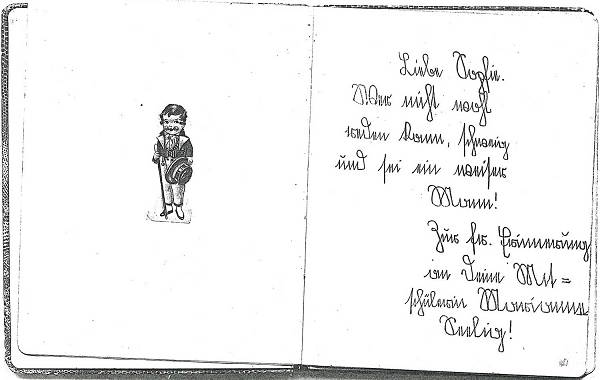 Liebe Sophie.
Wer nicht wohl
reden kann, schweig
und sei ein weiser
Mann!
Zur frd. Erinnerung
an Deine Mit=
schülerin Marianne
Seelig!